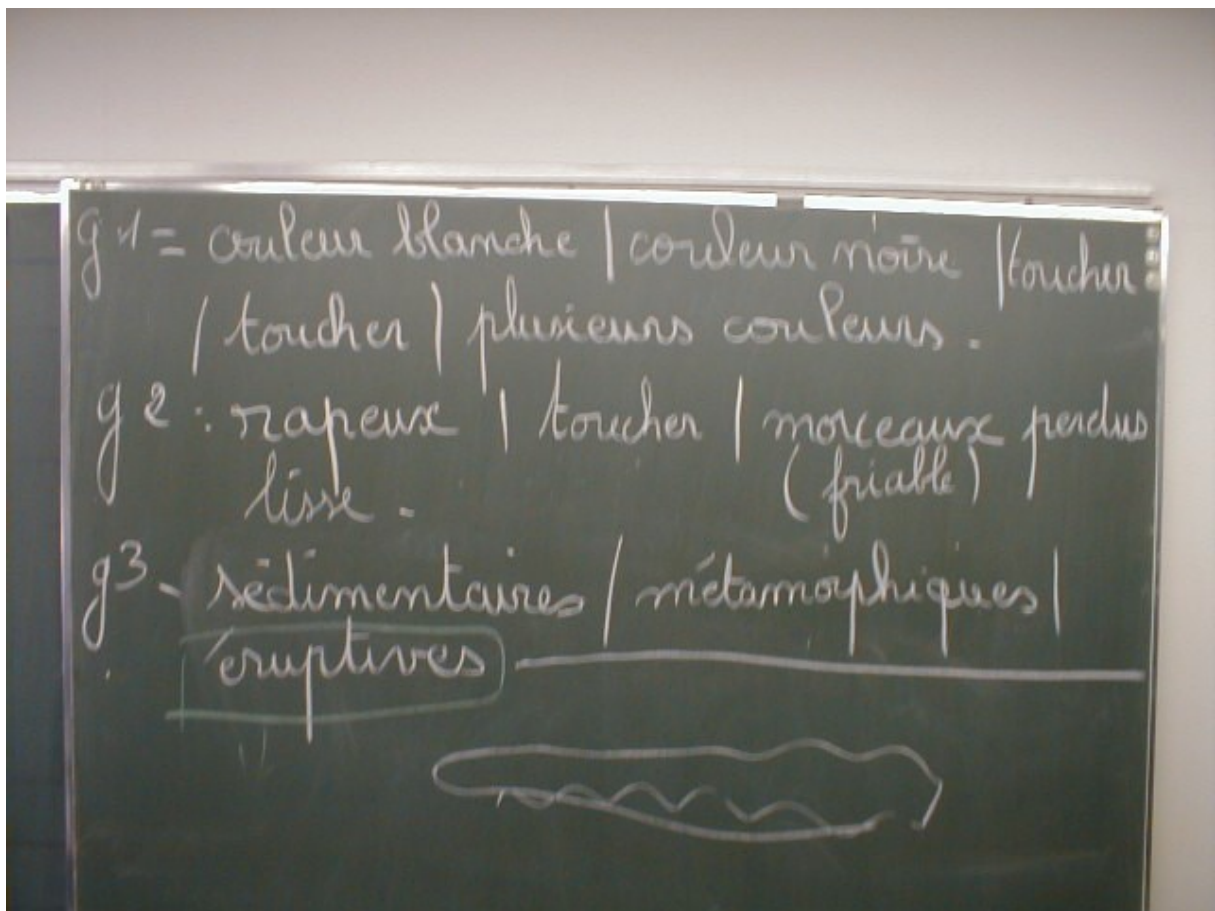 g1 = couleur blanche | couleur noire | toucher
| toucher | plusieurs couleurs.
g2 : rapeux | toucher | morceaux perdus
lisse. (friable) |
g3 - sédimentaires | métamorphiques |
éruptives